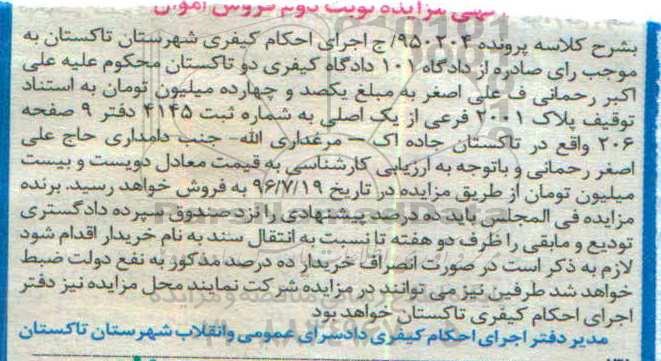 آگهی مزایده نوبت دوم فروش اموال
بشرح کلاسه پرونده ۹۵۰۲۰۴/ ج اجرای احکام کیفری شهرستان تاکستان به
موجب رای صادره از دادگاه ۱۰۱ دادگاه کیفری دو تاکستان محکوم علیه علی
اکبر رحمانی ف علی اصغر به مبلغ یکصد و چهارده میلیون تومان به استناد
توقیف پلاک ۲۰۰۱ فرعی از یک اصلی به شماره ثبت ۴۱۴۵ دفتر ۹ صفحه
۲۰۶ واقع در تاکستان جاده اک – مرغداری الله- جنب دامداری حاج علی
اصغر رحمانی و باتوجه به ارزیابی کارشناسی به قیمت معادل دویست و بیست
میلیون تومان از طریق مزایده در تاریخ ۹۶/۷/۱۹ به فروش خواهد رسید. برنده
مزایده فی المجلس باید ده درصد پیشنهادی را نزد صندوق سپرده دادگستری
تودیع و مابقی را ظرف دو هفته تا نسبت به انتقال سند به نام خریدار اقدام شود
لازم به ذکر است در صورت انصراف خریدار ده درصد مذکور به نفع دولت ضبط
خواهد شد طرفین نیز می توانند در مزایده شرکت نمایند محل مزایده نیز دفتر
اجرای احکام کیفری تاکستان خواهد بود
مدیر دفتر اجرای احکام کیفری دادسرای عمومی وانقلاب شهرستان تاکستان